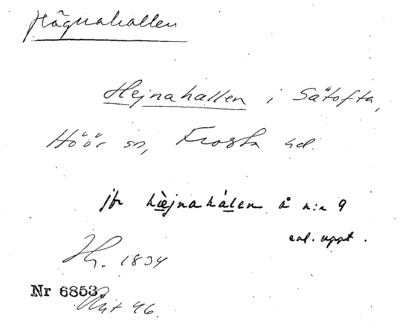 Hägnahallen
Hejnahallen i Sätofta,
Höör sn, Frosta hd.
jfr hèjnahálen å n:r 9
enl. uppt.
1834
Nr 6853.
46.